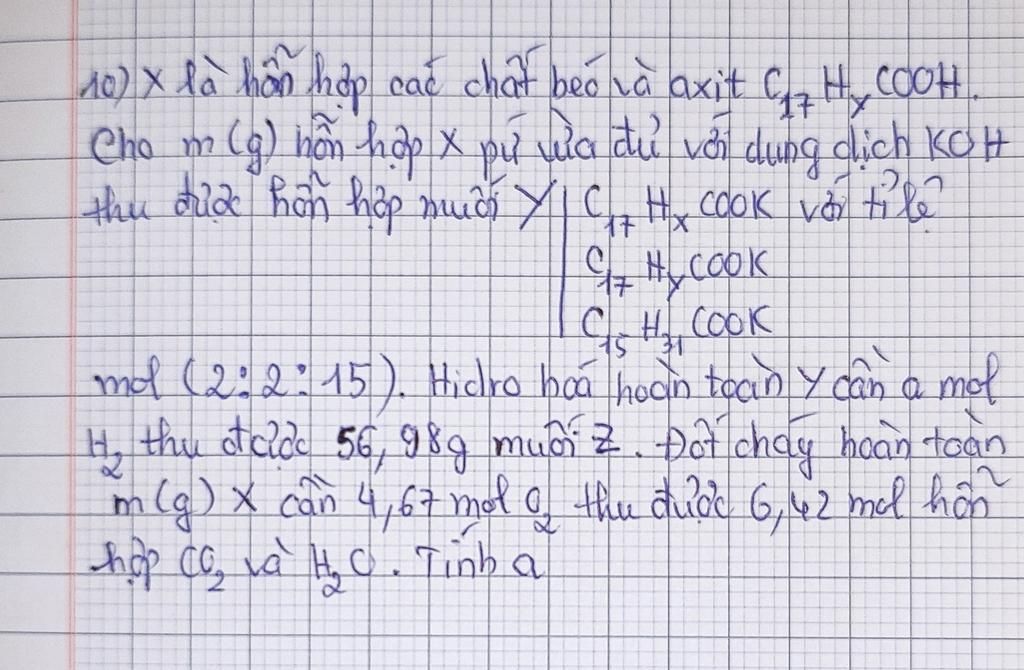 10) X là hỗn hợp các chất béo và axit C17HyCOOH.
Cho m(g) hỗn hợp X pứ vừa đủ với dung dịch KOH
thu được hỗn hợp muối Y | C17HxCOOK với tỉ lệ
C17HyCOOK
C15H31COOK
mol (2:2:15). Hidro hoá hoàn toàn Y cần a mol
H2 thu được 56,98g muối Z. Đốt cháy hoàn toàn
m(g) X cần 4,67 mol O2 thu được 6,42 mol hỗn
hợp CO2 và H2O. Tính a